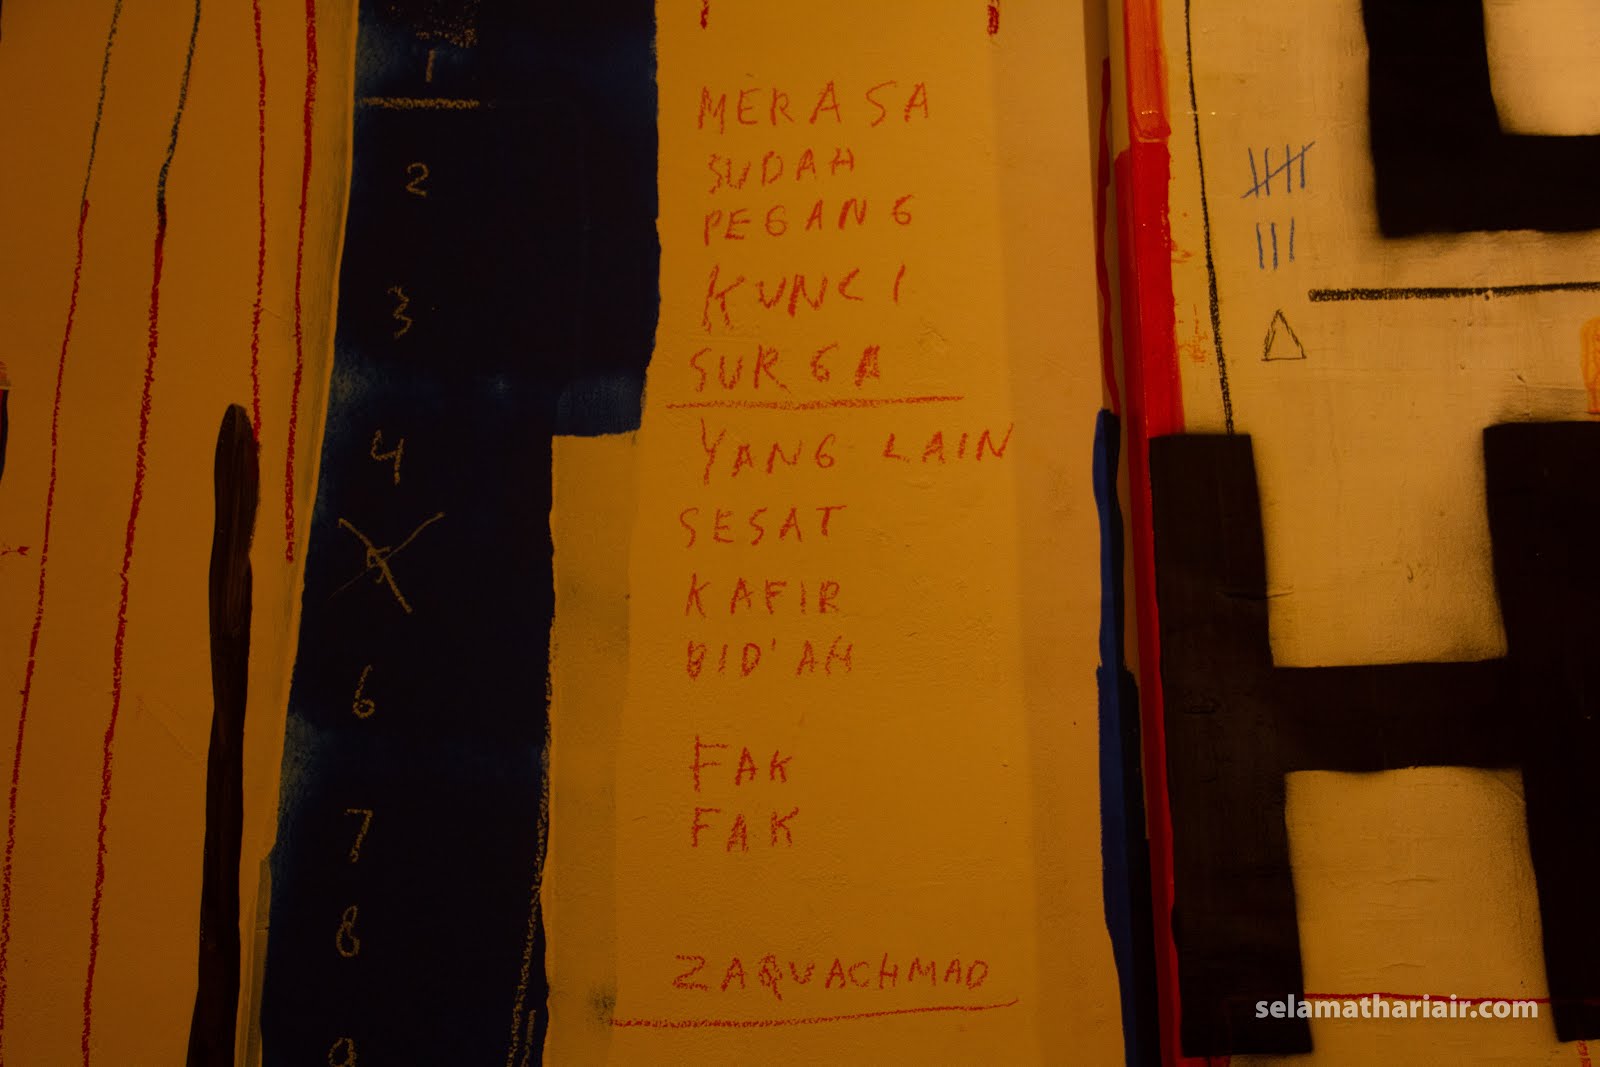 1
2
3
4
5
6
7
8
9
MERASA
SUDAH
PEGANG
KUNCI
SURGA
YANG LAIN
SESAT
KAFIR
BID'AH
FAK
FAK
ZAQUACHMAD
H
selamathariair.com